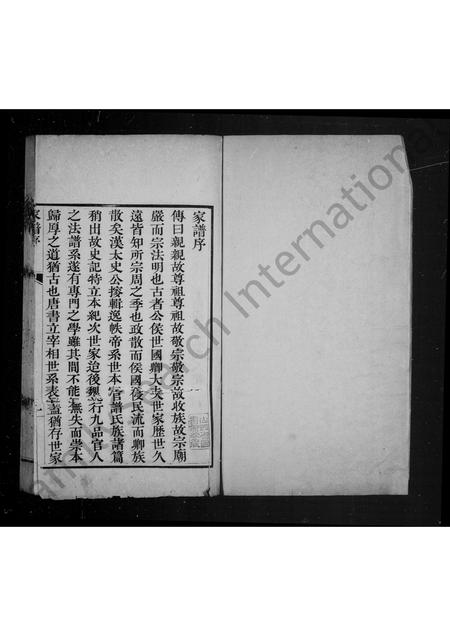 家譜序
傳曰親親故尊祖尊祖故敬宗敬宗故收族故宗廟
嚴而宗法明也古者公侯世國卿大夫世家歷世久
遠皆知所宗周之季也政散而侯國侵民流而卿族
散矣漢太史公搜輯逸帙帝系世本官譜氏族諸篇
稍出故史記特立本紀次世家迨後魏行九品官人
之法譜系遂有專門之學雖其間不能無失而崇本
歸厚之道猶古也唐書立宰相世系表蓋猶存世家
家譜序
Search International